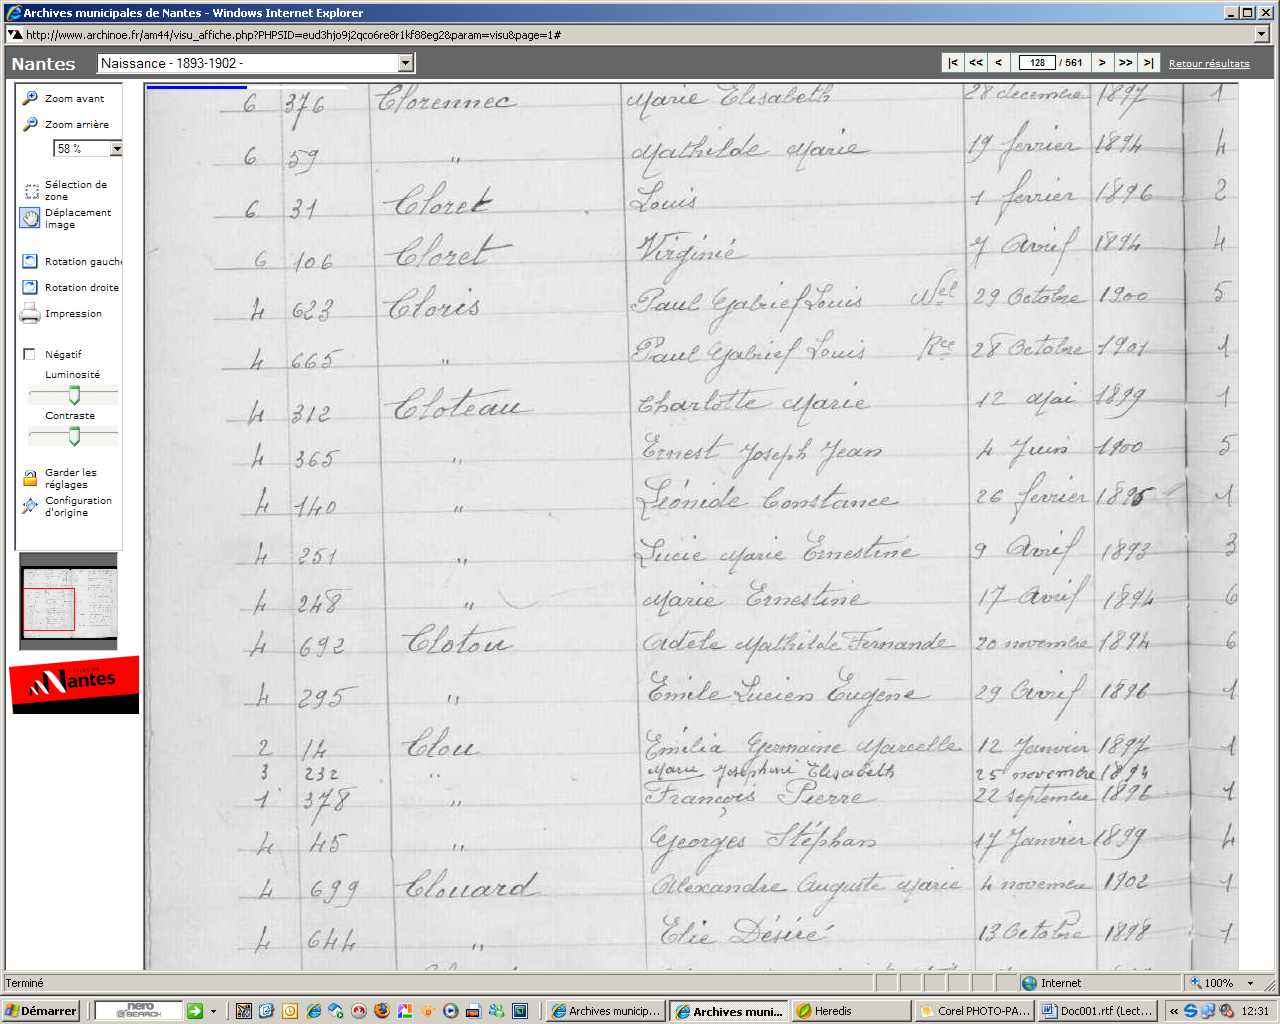 Archives municipales de Nantes - Windows Internet Explorer
http://www.archinoe.fr/am44/visu_affiche.php?PHPSID=eud3hjo9j2qco6re8r1kf88eg2&param=visu&page=1#
Nantes Naissance - 1893-1902 - |< << < 128 / 561 > >> >| Retour résultats
Zoom avant
Zoom arrière
58 %
Sélection de
zone
Déplacement
image
Rotation gauch
Rotation droite
Impression
Négatif
Luminosité
Contraste
Garder les
réglages
Configuration
d'origine
Nantes
6 376 Clorennec Marie Elisabeth 28 decembre 1897 1
6 59 " Mathilde Marie 19 fevrier 1894 4
6 31 Cloret Louis 1 fevrier 1896 2
6 106 Cloret Virginie 7 Avril 1894 4
4 623 Cloris Paul Gabriel Louis Nel 29 Octobre 1900 5
4 665 " Paul Gabriel Louis Rce 28 Octobre 1901 1
4 312 Cloteau Charlotte Marie 12 Mai 1899 1
4 365 " Ernest Joseph Jean 4 Juin 1900 5
4 140 " Léonide Constance 26 fevrier 1
4 251 " Lucie Marie Ernestine 9 Avril 1893 3
4 248 " Marie Ernestine 17 Avril 1894 6
4 692 Clotou Adèle Mathilde Fernande 20 novembre 1894 6
4 295 " Emile Lucien Eugène 29 Avril 1896 1
2 14 Clou Emilia Germaine Marcelle 12 Janvier 1897 1
3 232 " Marie Joséphine Elisabeth 25 novembre 1894
1 378 " François Pierre 22 septembre 1896 1
4 45 " Georges Stéphan 17 Janvier 1899 4
4 699 Clouard Alexandre Auguste Marie 4 novembre 1902 1
4 644 " Elie Désiré 13 Octobre 1898 1
Terminé Internet 100%
Démarrer nero SEARCH Archives municip... Archives muni... Heredis Corel PHOTO-PA... Doc001.rtf (Lect... 12:31